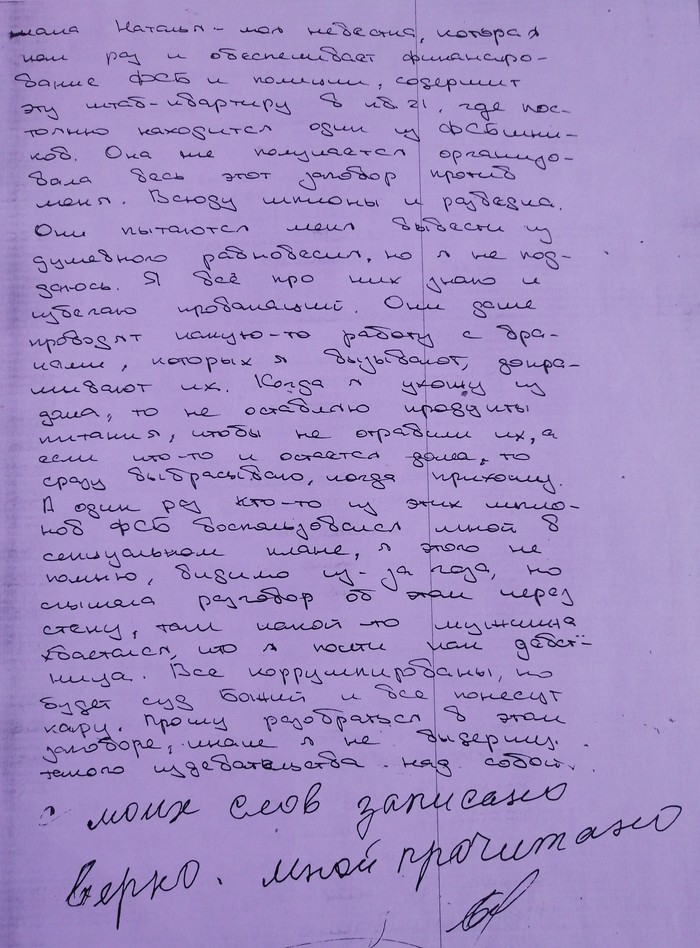 мама Наталья - моя невестка, которая
как раз и обеспечивает финансиро-
вание ФСБ и полиции, содержит
эту штаб-квартиру в кв. 21, где пос-
тоянно находится один из ФСБшни-
ков. Она же получается организо-
вала весь этот заговор против
меня. Всюду шпионы и разведка.
Они пытаются меня вывести из
душевного равновесия, но я не под-
даюсь. Я всё про них знаю и
избегаю провокаций. Они даже
проводят какую-то работу с вра-
чами, которых я вызывают, допра-
шивают их. Когда я ухожу из
дома, то не оставляю продукты
питания, чтобы не отравили их, а
если что-то и остается дома, то
сразу выбрасываю, когда прихожу.
А один раз кто-то из этих шпио-
нов ФСБ воспользовался мной в
сексуальном плане, я этого не
помню, видимо из-за газа, но
слышала разговор об этом через
стену, там какой-то мужчина
хвастался, что я почти как девст-
ница. Все коррумпированы, но
будет суд Божий и все понесут
кару. Прошу разобраться в этом
заговоре, иначе я не выдержу
такого издевательства над собой.
с моих слов записано
верно. мной прочитано